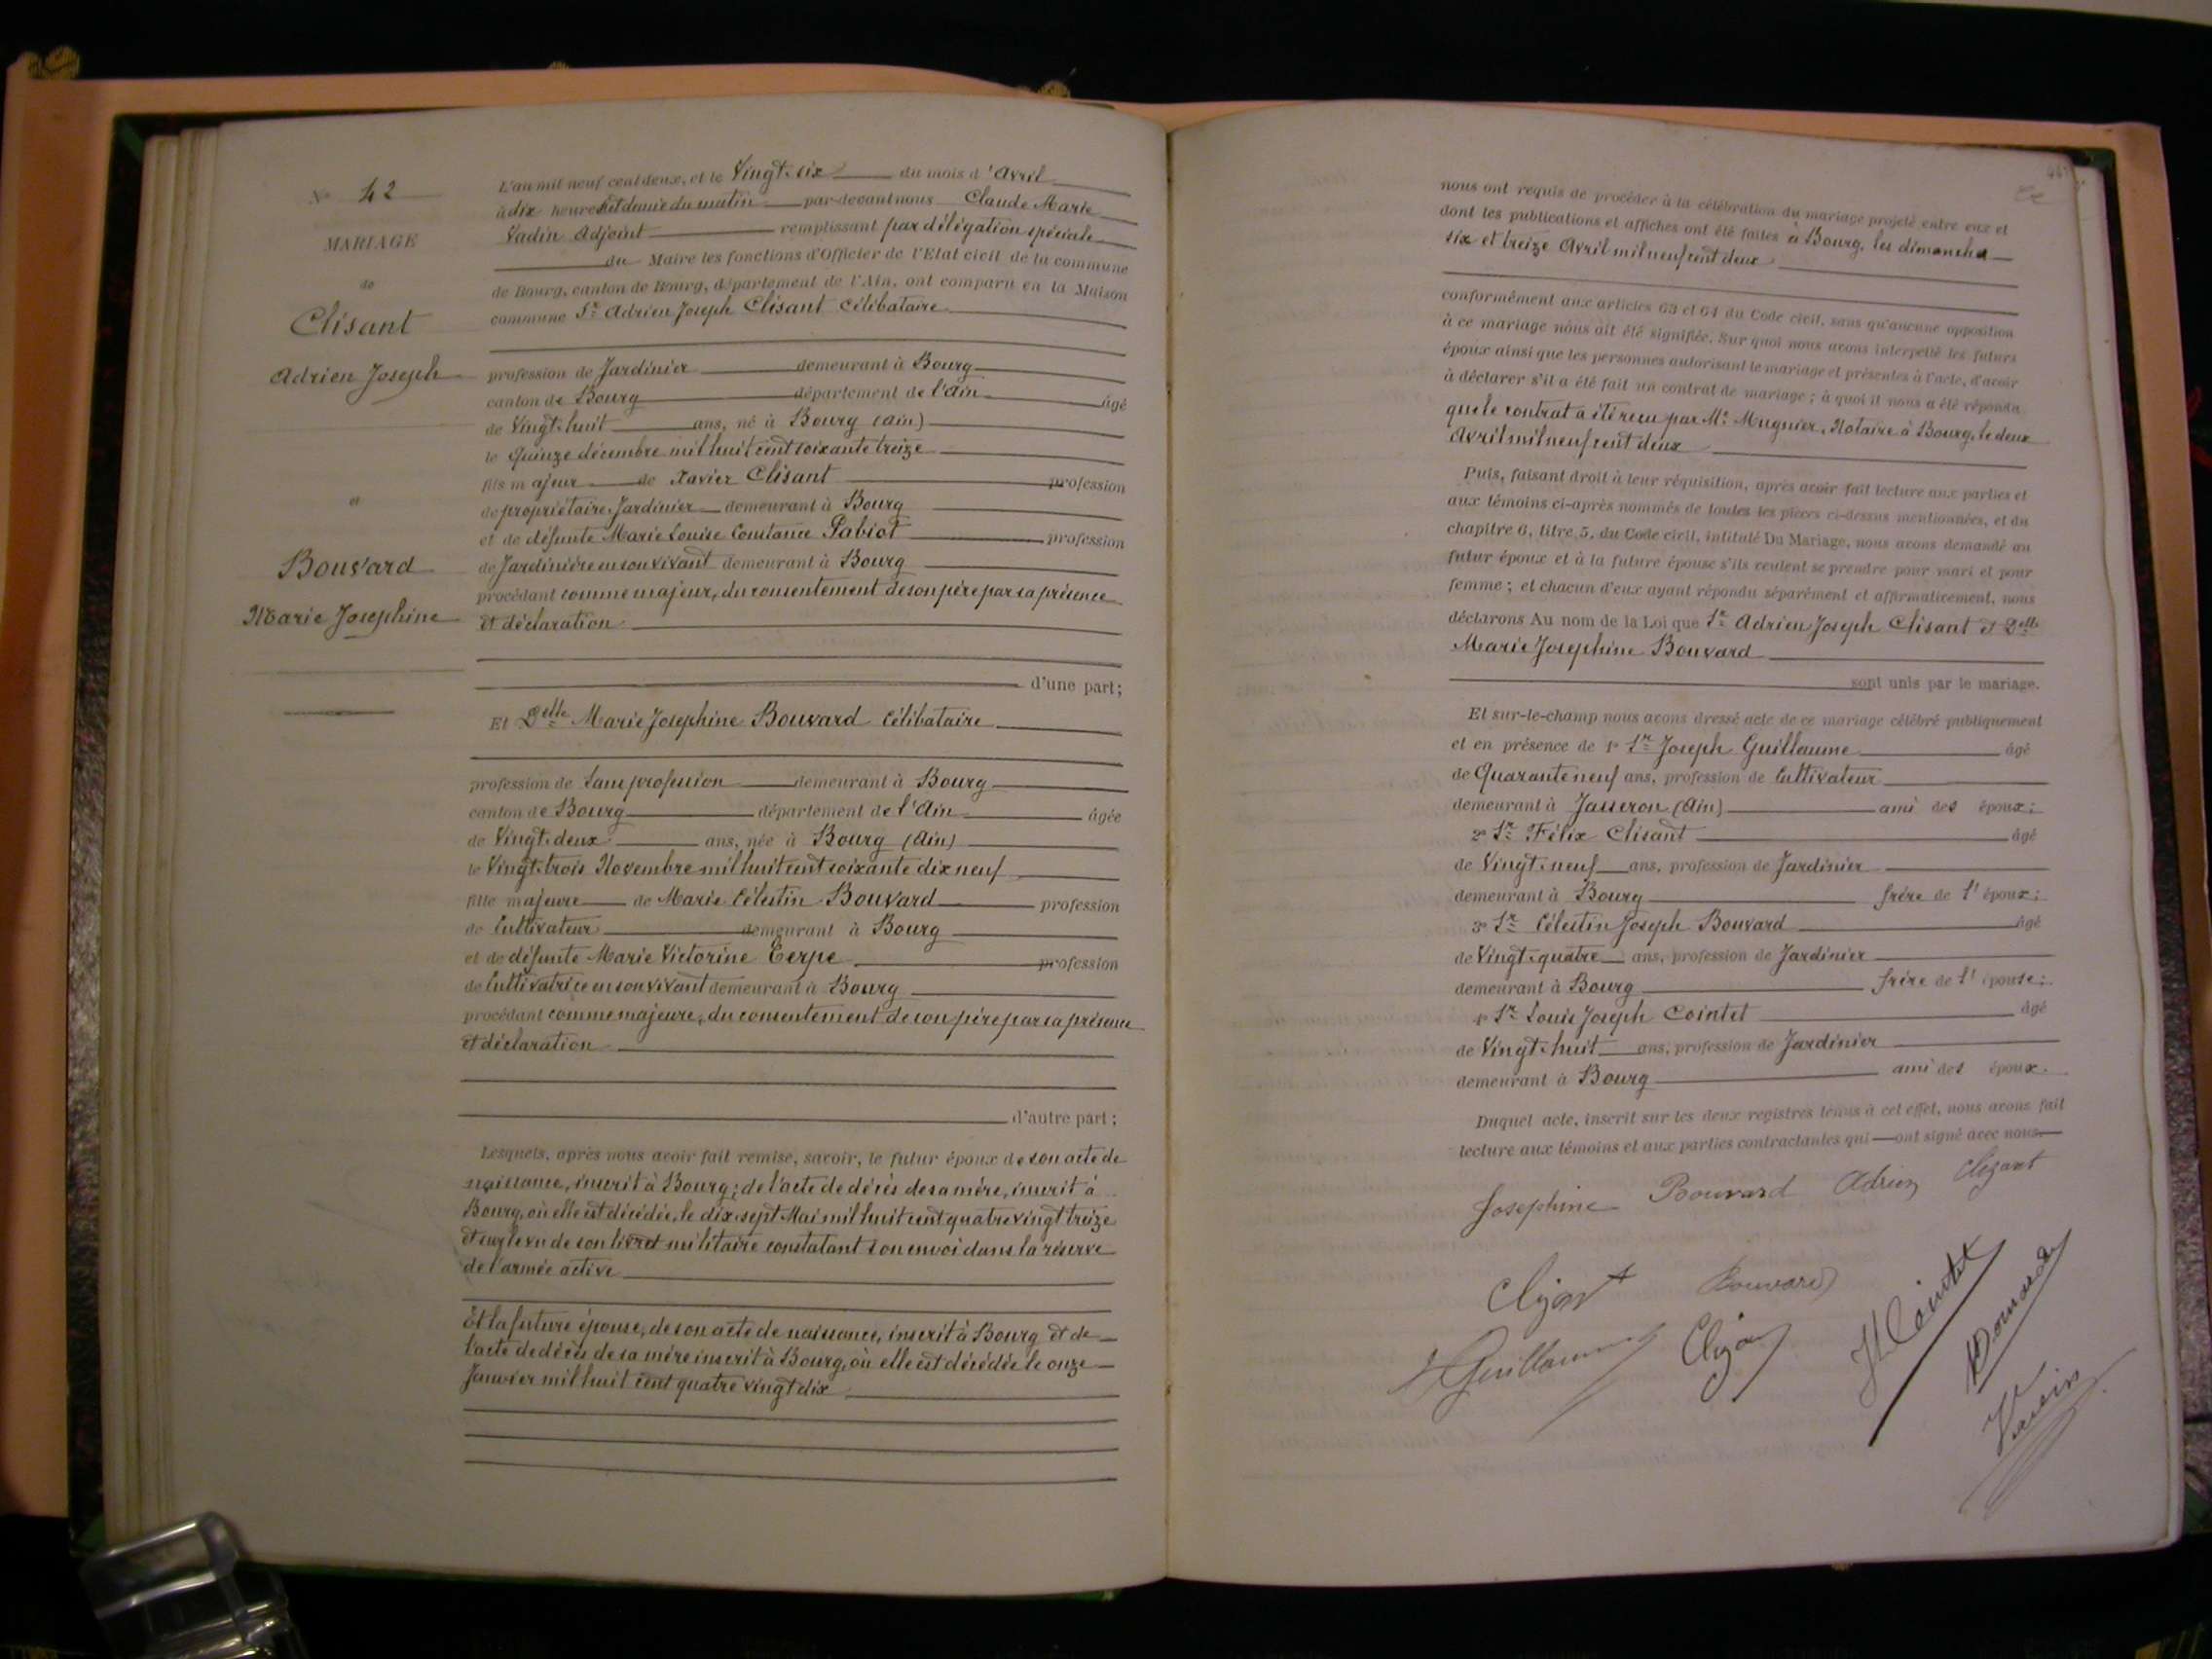 N° 42
MARIAGE
de
Clisant
Adrien Joseph
et
Bouvard
Marie Josephine
L'an mil neuf cent deux, et le Vingt-six du mois d'Avril
à dix heures et demie du matin par-devant nous Claude Marie
Vadin Adjoint remplissant par délégation spéciale
du Maire les fonctions d'Officier de l'Etat civil de la commune
de Bourg, canton de Bourg, département de l'Ain, ont comparu en la Maison
commune Sr Adrien Joseph Clisant Célibataire
profession de Jardinier demeurant à Bourg
canton de Bourg département de l'Ain âgé
de Vingt-huit ans, né à Bourg (Ain)
le quinze décembre mil huit cent soixante treize
fils majeur de Xavier Clisant profession
de propriétaire Jardinier demeurant à Bourg
et de défunte Marie Louise Constance Pabiot profession
de Jardinière en son vivant demeurant à Bourg
procédant comme majeur, du consentement de son père par sa présence
et déclaration
d'une part;
Et Delle Marie Josephine Bouvard Célibataire
profession de Sans profession demeurant à Bourg
canton de Bourg département de l'Ain âgée
de Vingt-deux ans, née à Bourg (Ain)
le Vingt-trois Novembre mil huit cent soixante dix neuf
fille majeure de Marie Célestin Bouvard profession
de Cultivateur demeurant à Bourg
et de défunte Marie Victorine Cerpe profession
de Cultivatrice en son vivant demeurant à Bourg
procédant comme majeure, du consentement de son père par sa présence
et déclaration
d'autre part;
Lesquels, après nous avoir fait remise, savoir, le futur époux de son acte de
naissance, inscrit à Bourg; de l'acte de décès de sa mère, inscrit à
Bourg, où elle est décédée, le dix-sept Mai mil huit cent quatre vingt treize
et sur le vu de son livret militaire constatant son envoi dans la réserve
de l'armée active
Et la future épouse, de son acte de naissance, inscrit à Bourg et de
l'acte de décès de sa mère inscrit à Bourg, où elle est décédée le onze
Janvier mil huit cent quatre vingt dix
nous ont requis de procéder à la célébration du mariage projeté entre eux et
dont les publications et affiches ont été faites à Bourg, les dimanches
six et treize Avril mil neuf cent deux
conformément aux articles 63 et 64 du Code civil, sans qu'aucune opposition
à ce mariage nous ait été signifiée. Sur quoi nous avons interpellé les futurs
époux ainsi que les personnes autorisant le mariage et présentes à l'acte, d'avoir
à déclarer s'il a été fait un contrat de mariage; à quoi il nous a été répondu
que le contrat a été reçu par Me Mugnier, Notaire à Bourg, le deux
Avril mil neuf cent deux
Puis, faisant droit à leur réquisition, après avoir fait lecture aux parties et
aux témoins ci-après nommés de toutes les pièces ci-dessus mentionnées, et du
chapitre 6, titre 5, du Code civil, intitulé Du Mariage, nous avons demandé au
futur époux et à la future épouse s'ils veulent se prendre pour mari et pour
femme; et chacun d'eux ayant répondu séparément et affirmativement, nous
déclarons Au nom de la Loi que Sr Adrien Joseph Clisant et Delle
Marie Josephine Bouvard
sont unis par le mariage.
Et sur-le-champ nous avons dressé acte de ce mariage célébré publiquement
et en présence de 1° Sr Joseph Guillaume âgé
de Quarante neuf ans, profession de Cultivateur
demeurant à Jasseron (Ain) ami des époux;
2° Sr Félix Clisant âgé
de Vingt-neuf ans, profession de Jardinier
demeurant à Bourg frère de l'époux;
3° Sr Célestin Joseph Bouvard âgé
de Vingt-quatre ans, profession de Jardinier
demeurant à Bourg frère de l'épouse;
4° Sr Louis Joseph Cointet âgé
de Vingt-huit ans, profession de Jardinier
demeurant à Bourg ami des époux.
Duquel acte, inscrit sur les deux registres tenus à cet effet, nous avons fait
lecture aux témoins et aux parties contractantes qui ont signé avec nous
Josephine Bouvard Adrien Clizant
Bouvard
Guillaume
Cointet
Vadin